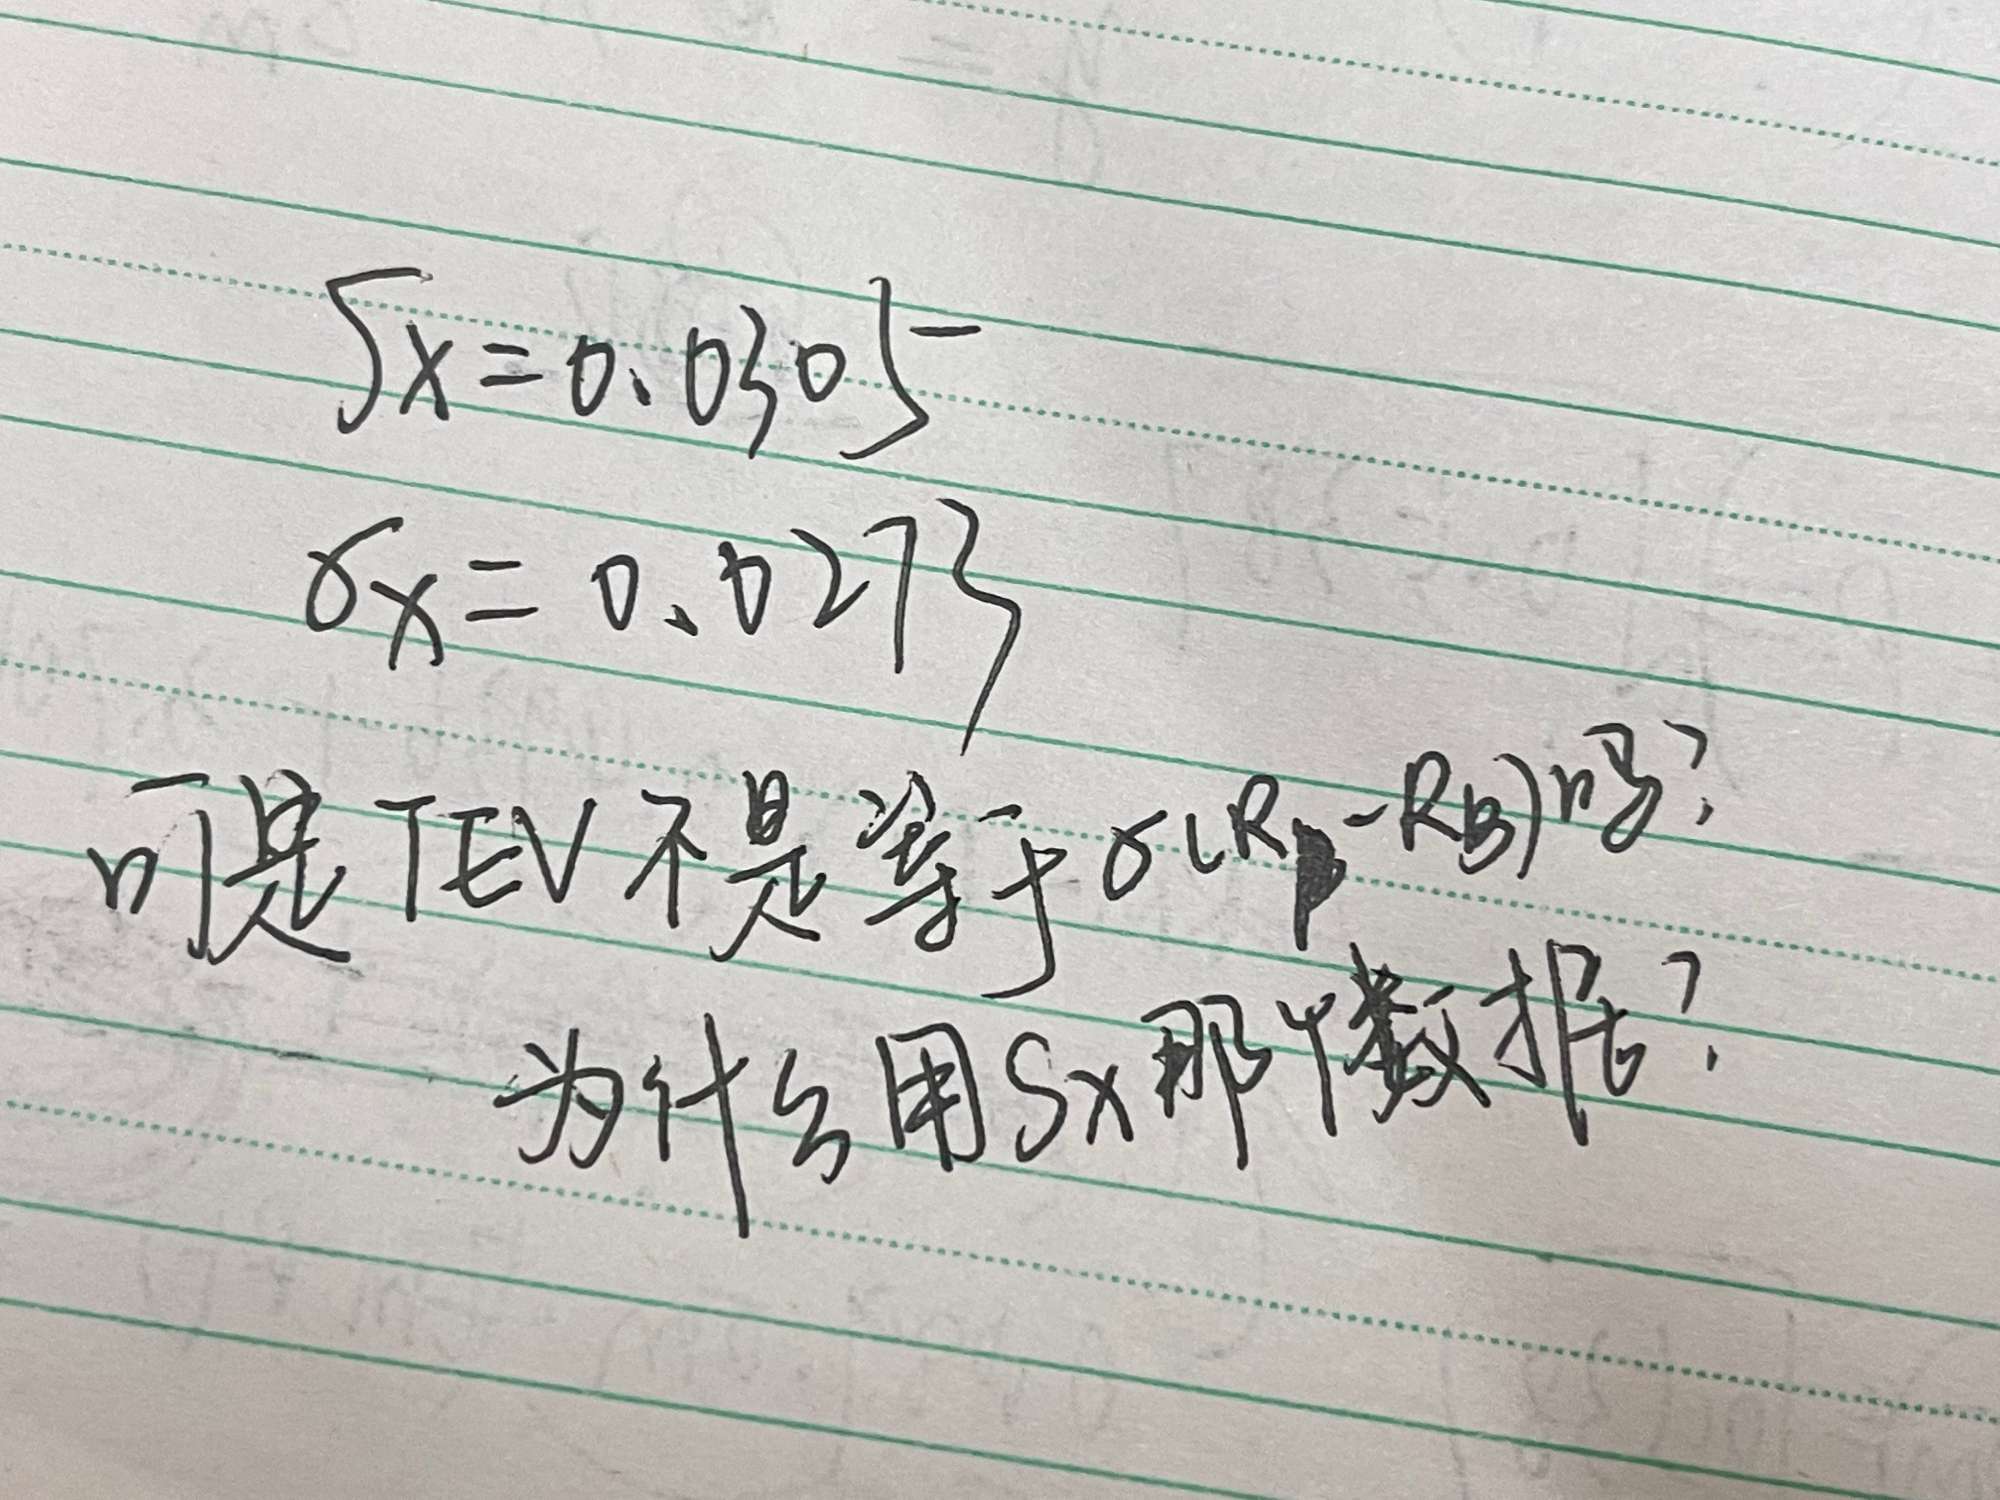 Sx=0.0305
σx=0.0273
可是TEV不是等于σ(Rp-RB)吗?
为什么用Sx那个数据?